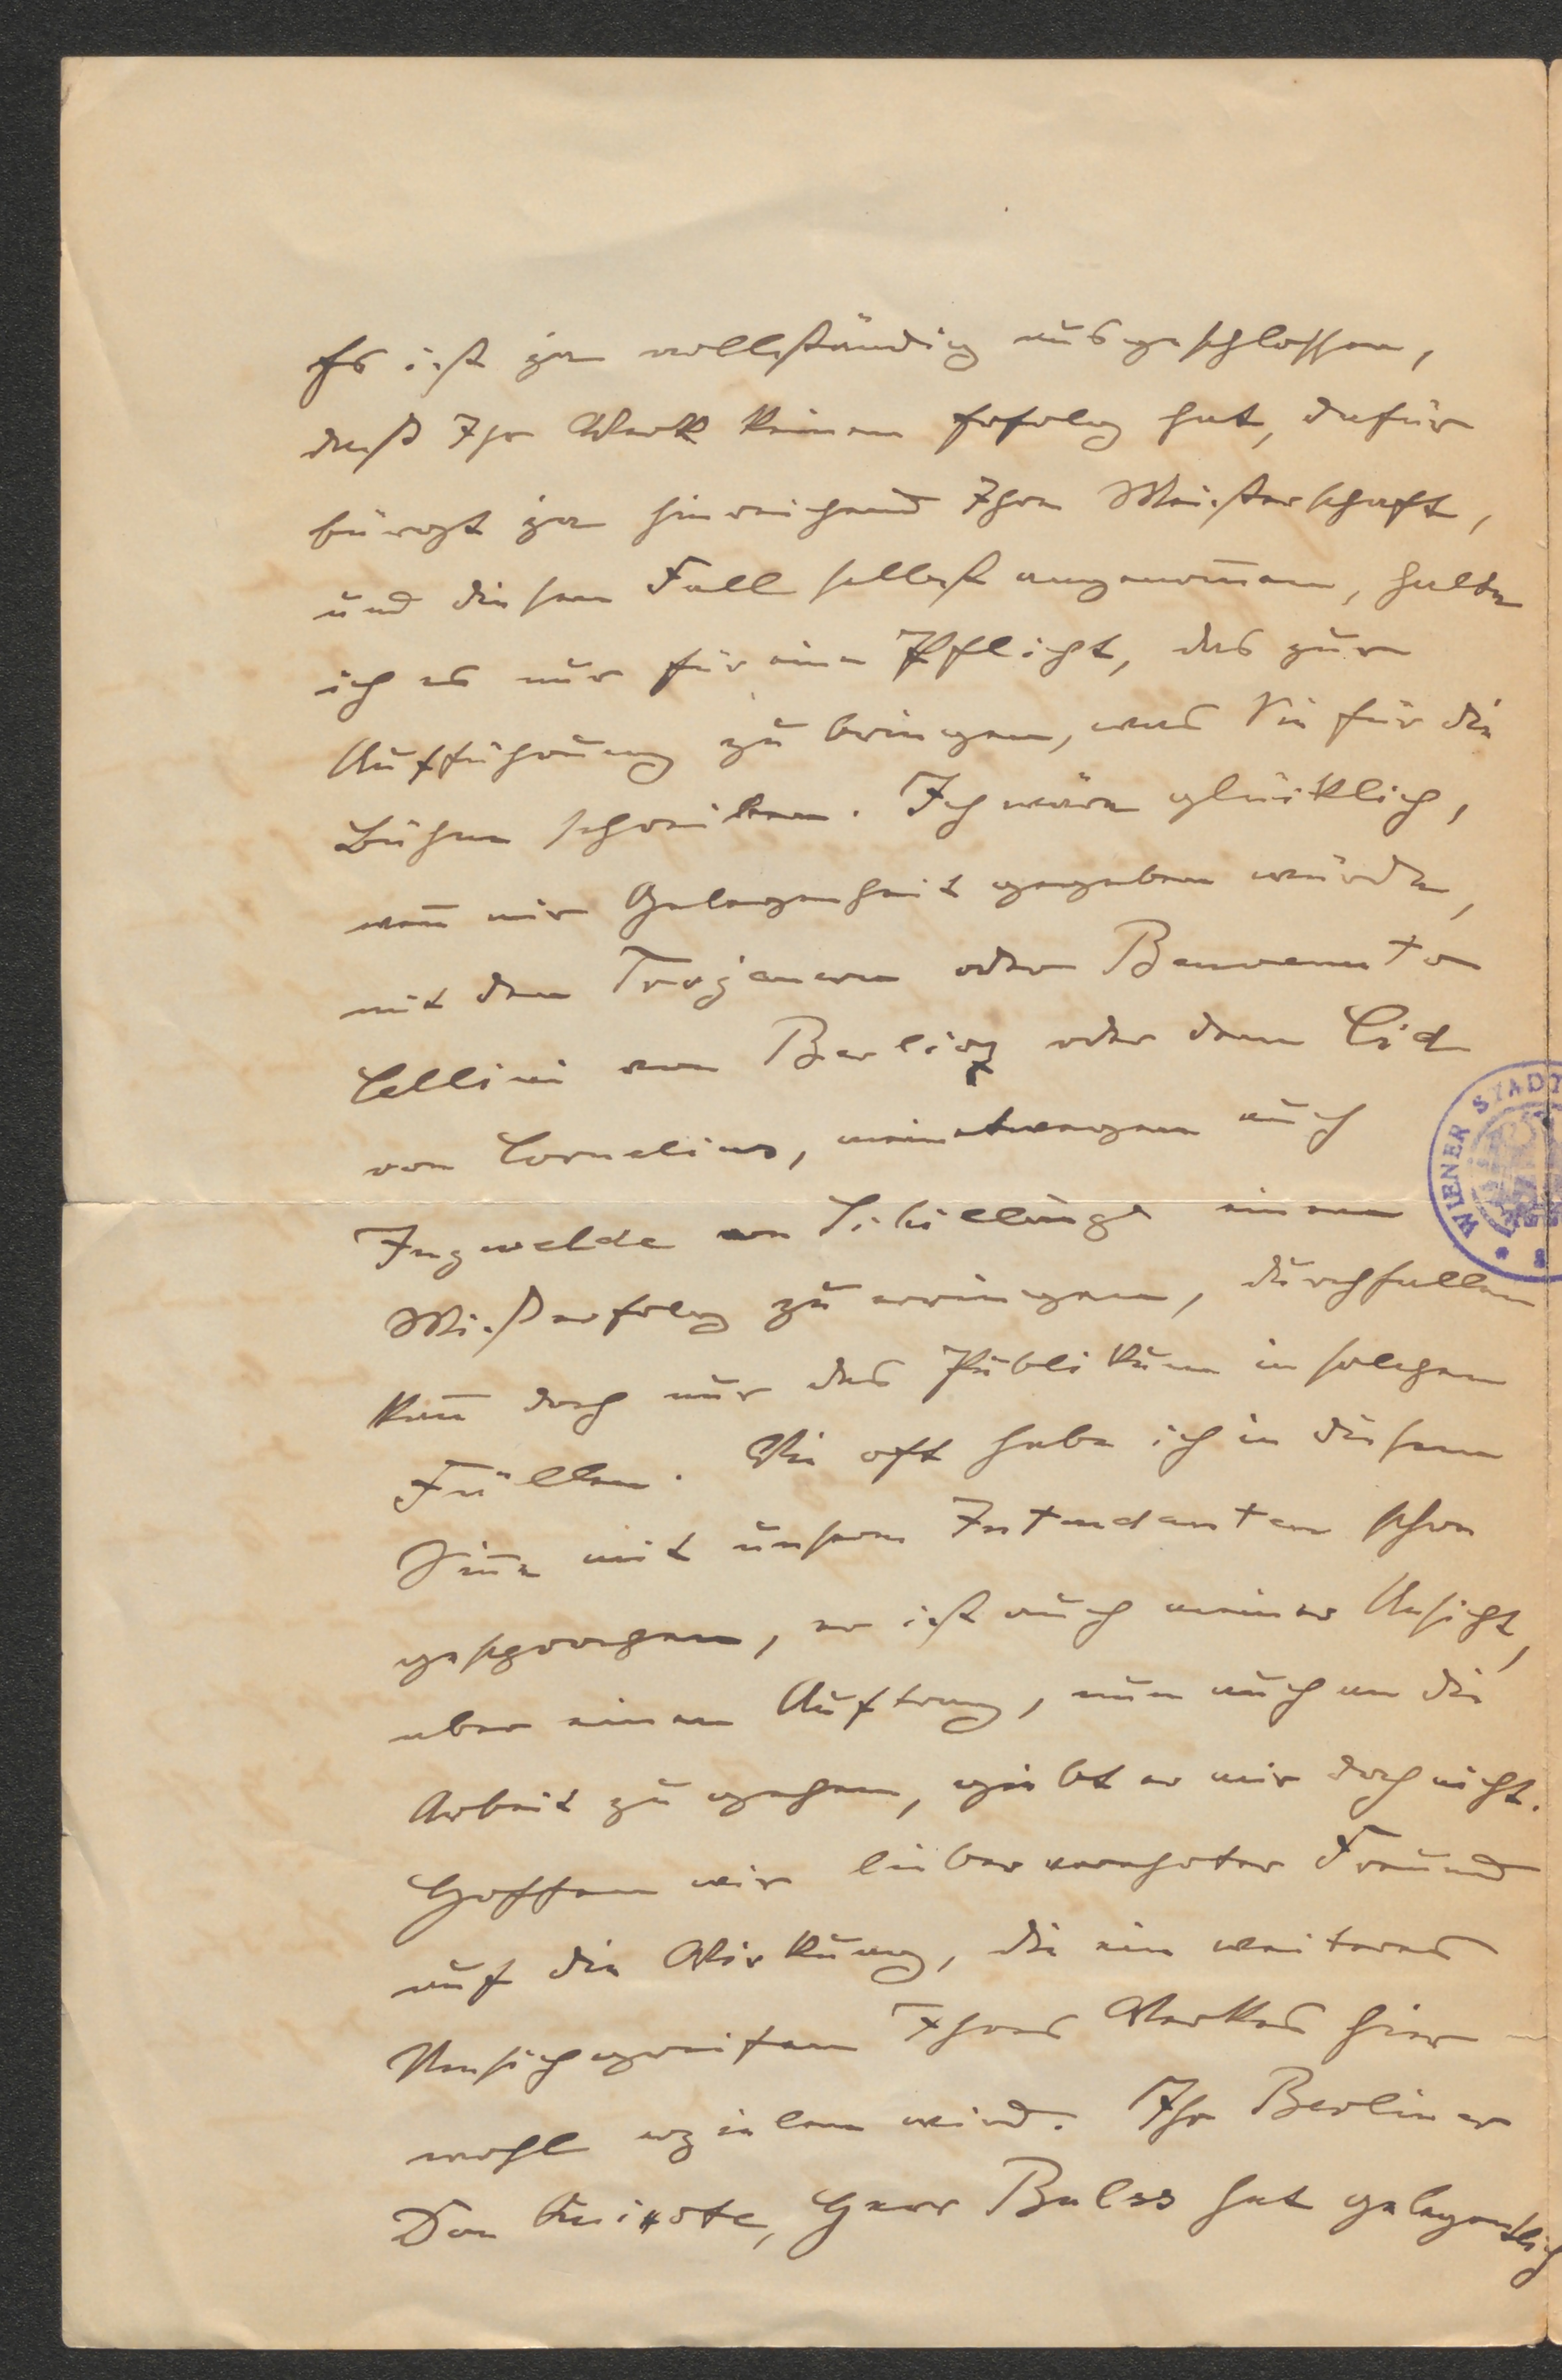 Es ist ja vollständig ausgeschlossen,
daß Ihr Werk keinen Erfolg hat, dafür
bürgt ja hinreichend Ihre Meisterschaft,
und diesen Fall selbst angenom̄en, halte
ich es nur für eine Pflicht, das zur
Aufführung zu bringen, was Sie für die
Bühne schreiben. Ich wäre glücklich,
wen̄ mir Gelegenheit gegeben würde,
mit den Trojanern oder Benvenuto
Cellini von Berlioz oder dem Cid
von Cornelius, meinetwegen auch
WIENER STADT
Ingwelde von Schillings einen
Mißerfolg zu erringen, durchfallen
kan̄ doch nur das Publikum in solchen
Fällen. Wie oft habe ich in diesem
Sin̄e mit unserm Intendanten schon
gesprochen, er ist auch meiner Ansicht,
aber einen Auftrag, nun auch an die
Arbeit zu gehen, giebt er mir doch nicht.
Hoffen wir lieber verehrter Freund
auf die Wirkung, die ein weiteres
Umsichgreifen Ihres Werkes hier
wohl erzielen wird. Ihr Berliner
Don Quixote, Herr Bulss hat gelegentlich